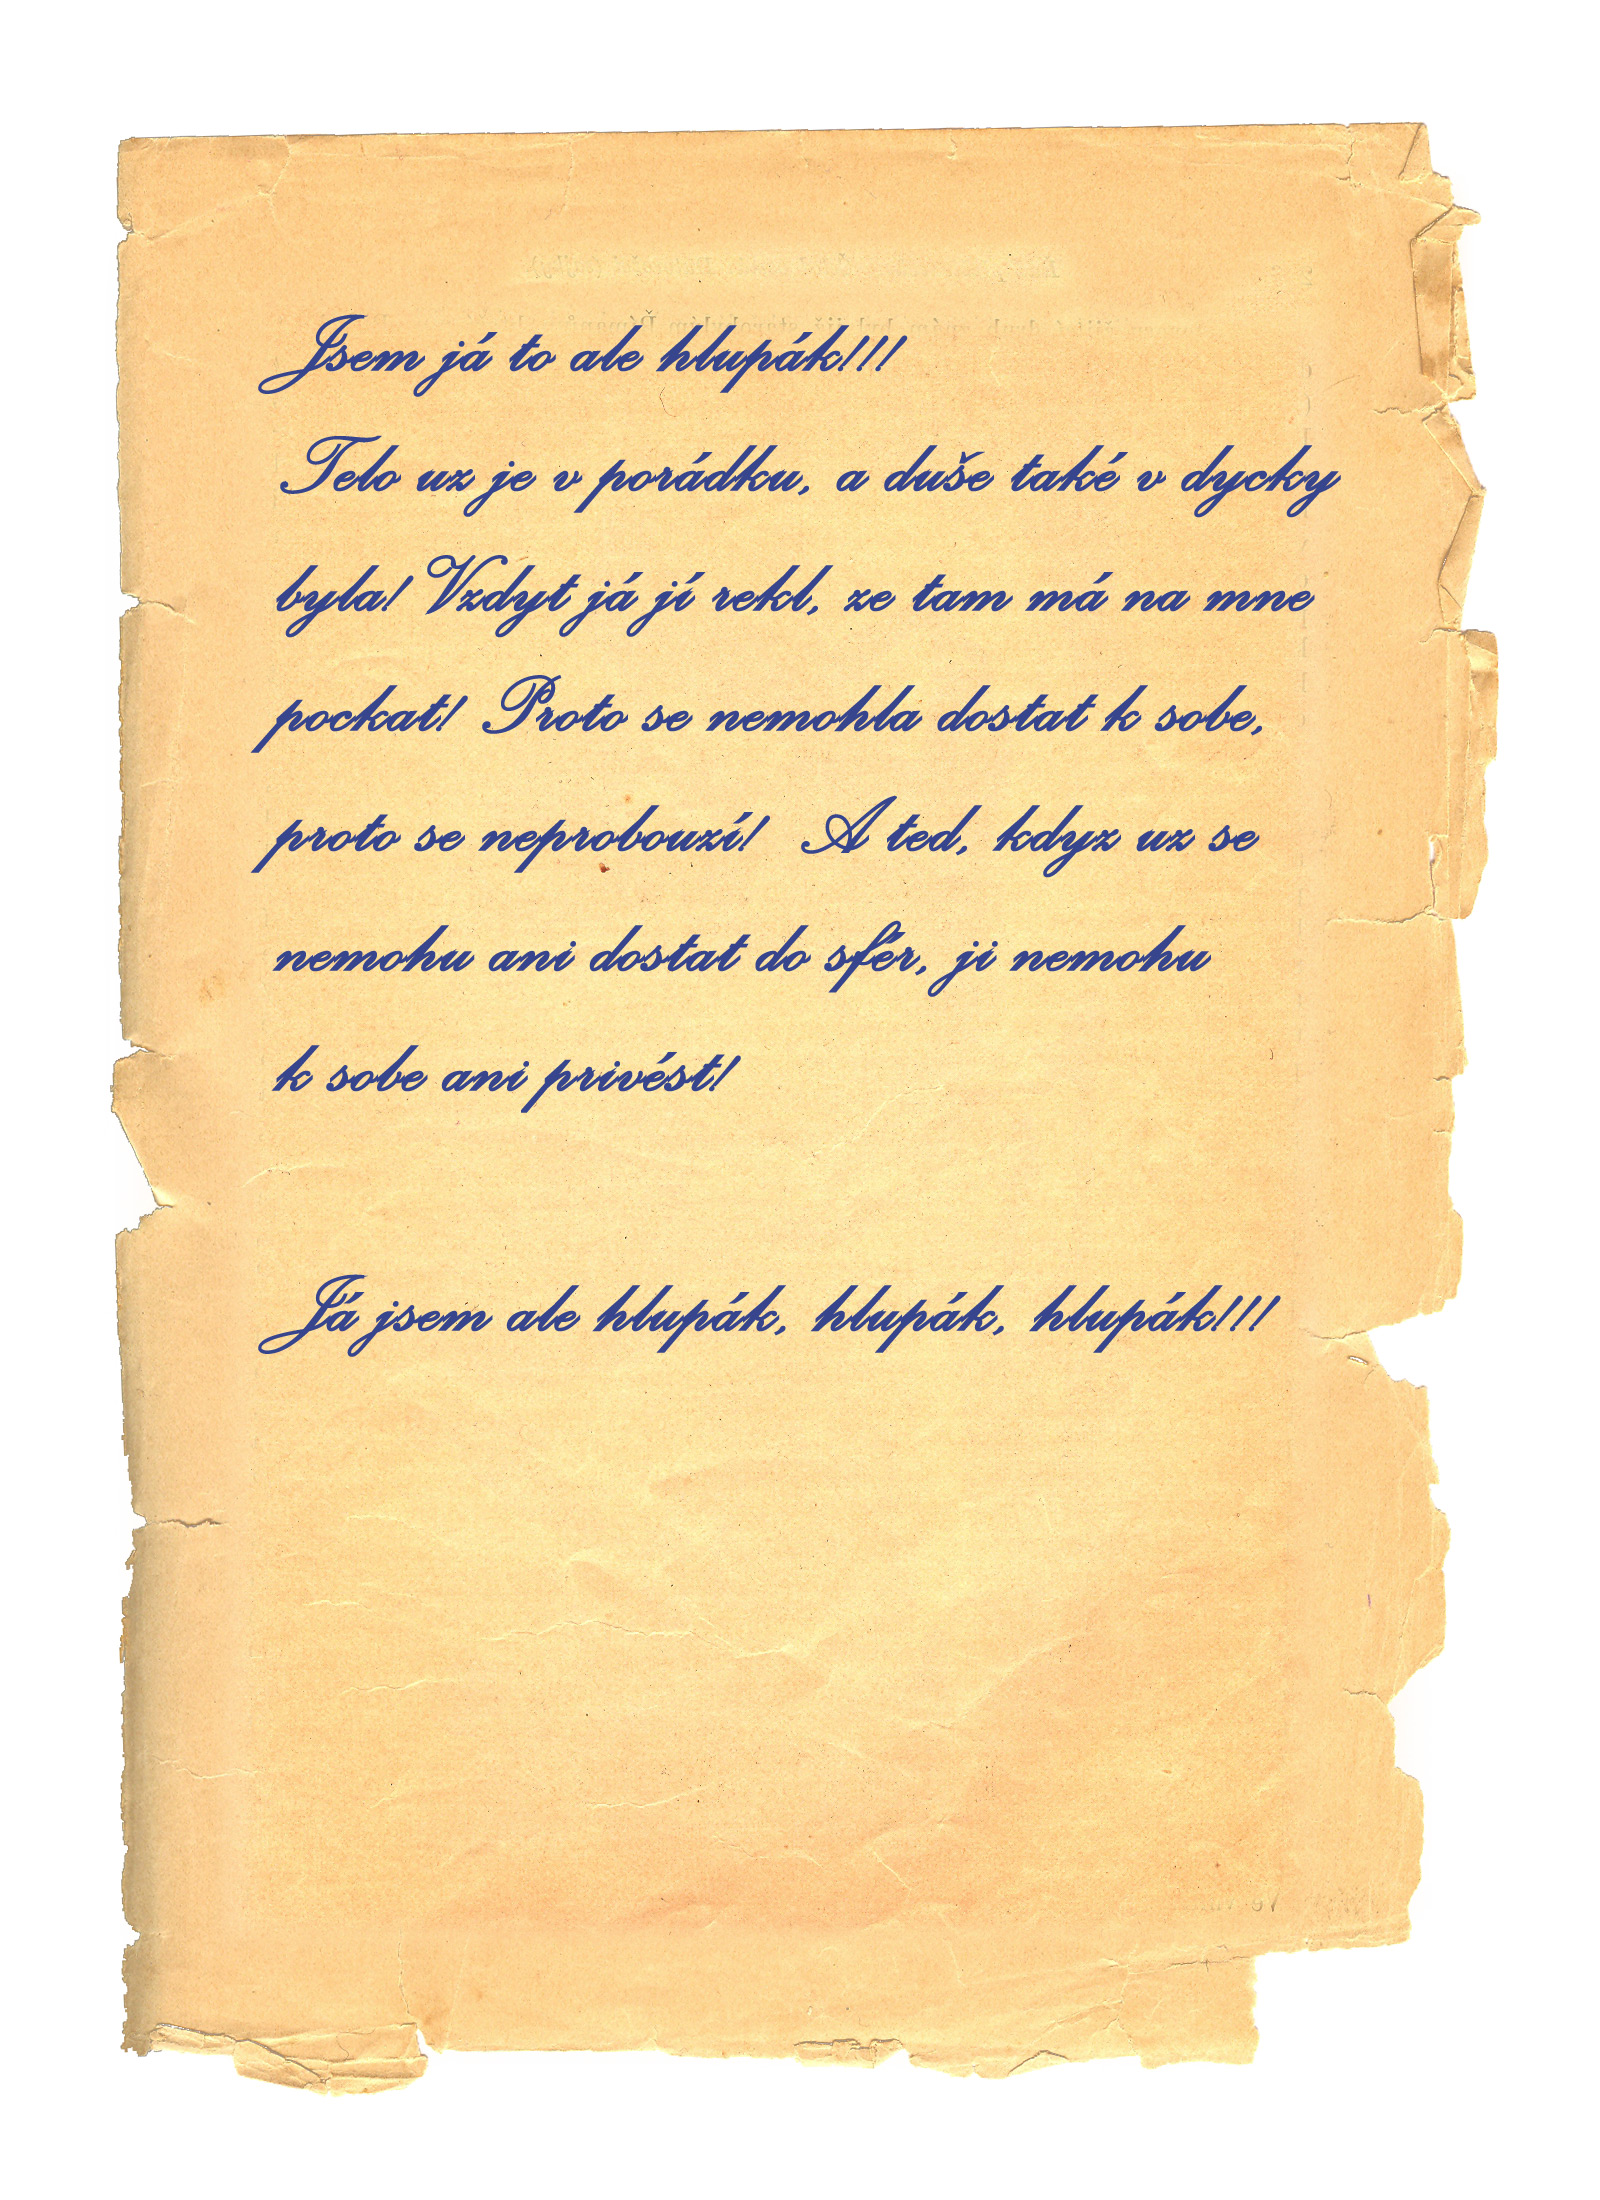 Jsem já to ale hlupák!!!
Telo uz je v porádku, a duše také v dycky
byla! Vzdyt já jí rekl, ze tam má na mne
pockat! Proto se nemohla dostat k sobe,
proto se neprobouzí! A ted, kdyz uz se
nemohu ani dostat do sfér, ji nemohu
k sobe ani privést!
Já jsem ale hlupák, hlupák, hlupák!!!